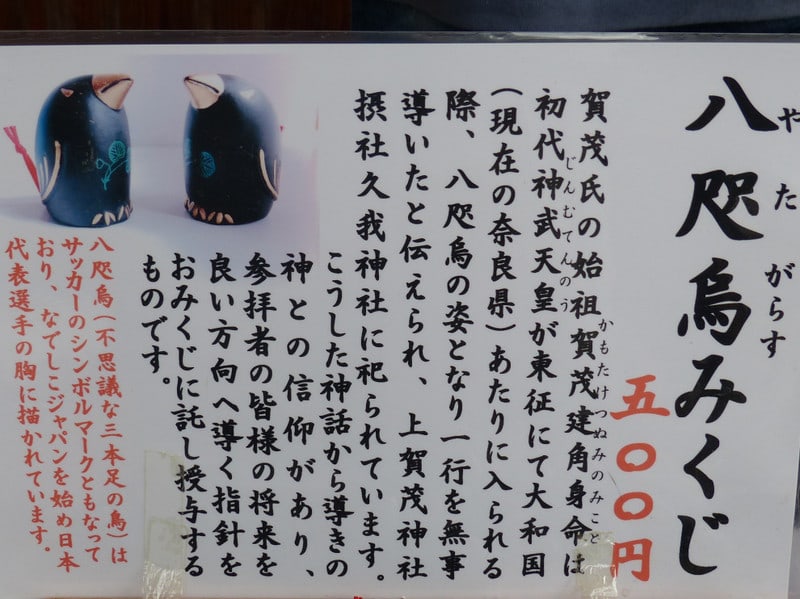 八咫烏みくじ
やたがらす
五〇〇円
賀茂氏の始祖賀茂建角身命は
かもたけつぬみのみこと
初代神武天皇が東征にて大和国
じんむてんのう
(現在の奈良県)あたりに入られる
際、八咫烏の姿となり一行を無事
導いたと伝えられ、上賀茂神社
摂社久我神社に祀られています。
こうした神話から導きの
神との信仰があり、
参拝者の皆様の将来を
良い方向へ導く指針を
おみくじに託し授与する
ものです。
八咫烏(不思議な三本足の烏)は
サッカーのシンボルマークともなって
おり、なでしこジャパンを始め日本
代表選手の胸に描かれています。